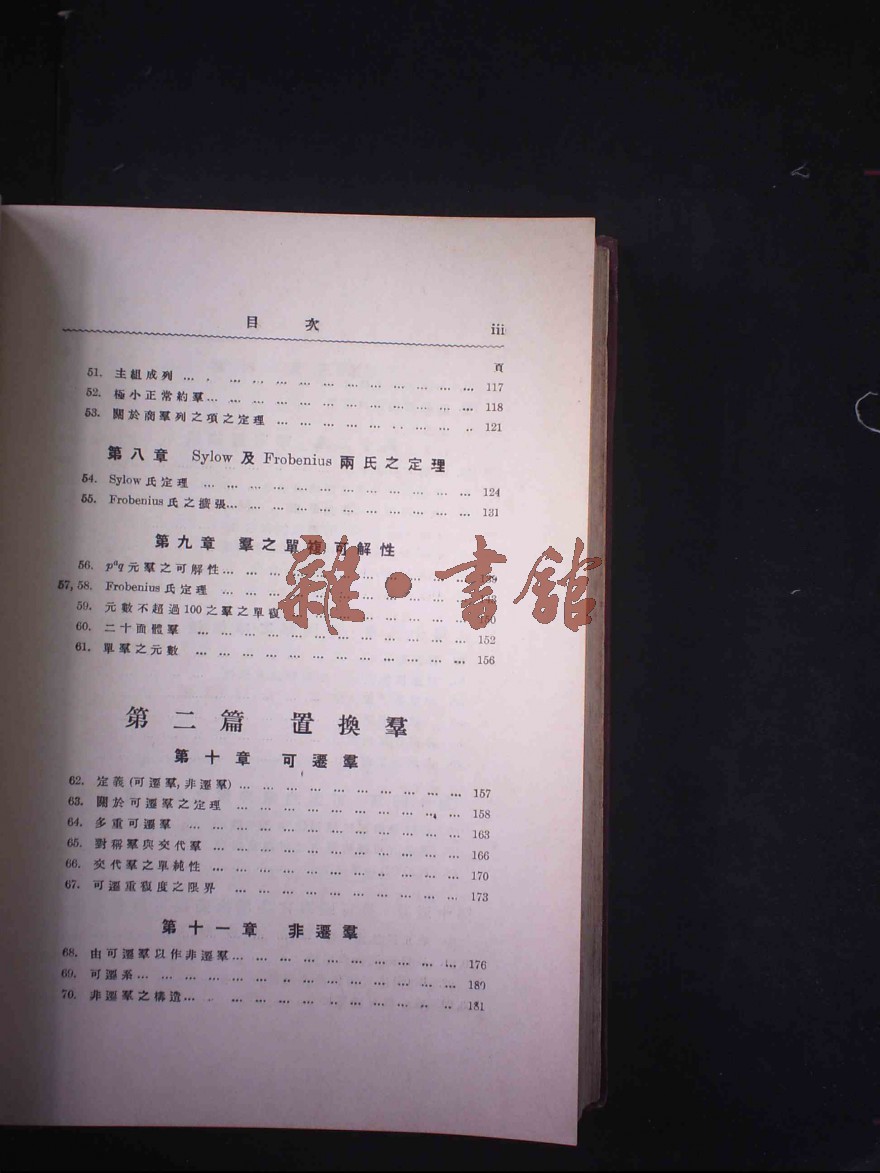 目 次 iii
頁
51. 主組成列 … … … … … … … … … … … … 117
52. 極小正常約羣 … … … … … … … … … … … 118
53. 關於商羣列之項之定理 … … … … … … … … 121
第八章 Sylow 及 Frobenius 兩氏之定理
54. Sylow 氏定理 … … … … … … … … … … … 124
55. Frobenius 氏之擴張 … … … … … … … … … 131
第九章 羣之單複可解性
56. pᵃq 元羣之可解性 … … … … … … … … …
57, 58. Frobenius 氏定理 … … … … … … … … …
59. 元數不超過100之羣之單複 … … … … … … 150
60. 二十面體羣 … … … … … … … … … … … 152
61. 單羣之元數 … … … … … … … … … … … 156
第二篇 置換羣
第十章 可遷羣
62. 定義(可遷羣,非遷羣) … … … … … … … … 157
63. 關於可遷羣之定理 … … … … … … … … … 158
64. 多重可遷羣 … … … … … … … … … … … 163
65. 對稱羣與交代羣 … … … … … … … … … … 166
66. 交代羣之單純性 … … … … … … … … … … 170
67. 可遷重複度之限界 … … … … … … … … … 173
第十一章 非遷羣
68. 由可遷羣以作非遷羣 … … … … … … … … 176
69. 可遷系 … … … … … … … … … … … … … 180
70. 非遷羣之構造 … … … … … … … … … … 181
雜·書館